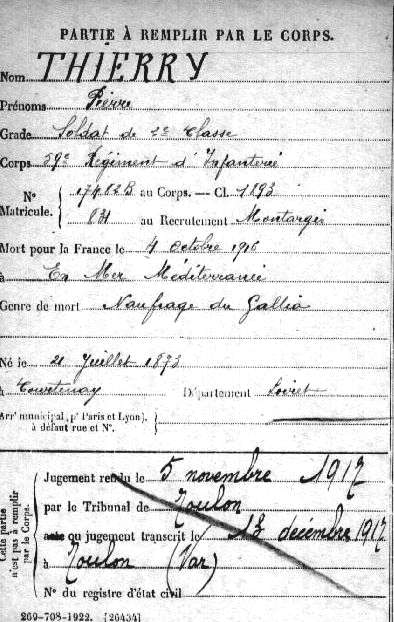 PARTIE À REMPLIR PAR LE CORPS.
Nom THIERRY
Prénoms Pierre
Grade Soldat de 2e Classe
Corps 59e Régiment d'Infanterie
N° 17482B au Corps. — Cl. 1893
Matricule. 834 au Recrutement Montargis
Mort pour la France le 4 octobre 1916
à En Mer Méditerranée
Genre de mort Naufrage du Gallia
Né le 21 Juillet 1873
à Courtenay Département Loiret
Arrt municipal (pr Paris et Lyon),
à défaut rue et N°.
Cette partie
n'est pas à remplir
par le Corps.
Jugement rendu le 5 novembre 1917
par le Tribunal de Toulon
acte ou jugement transcrit le 13 décembre 1917
à Toulon (Var)
N° du registre d'état civil
269-708-1922. [26434]